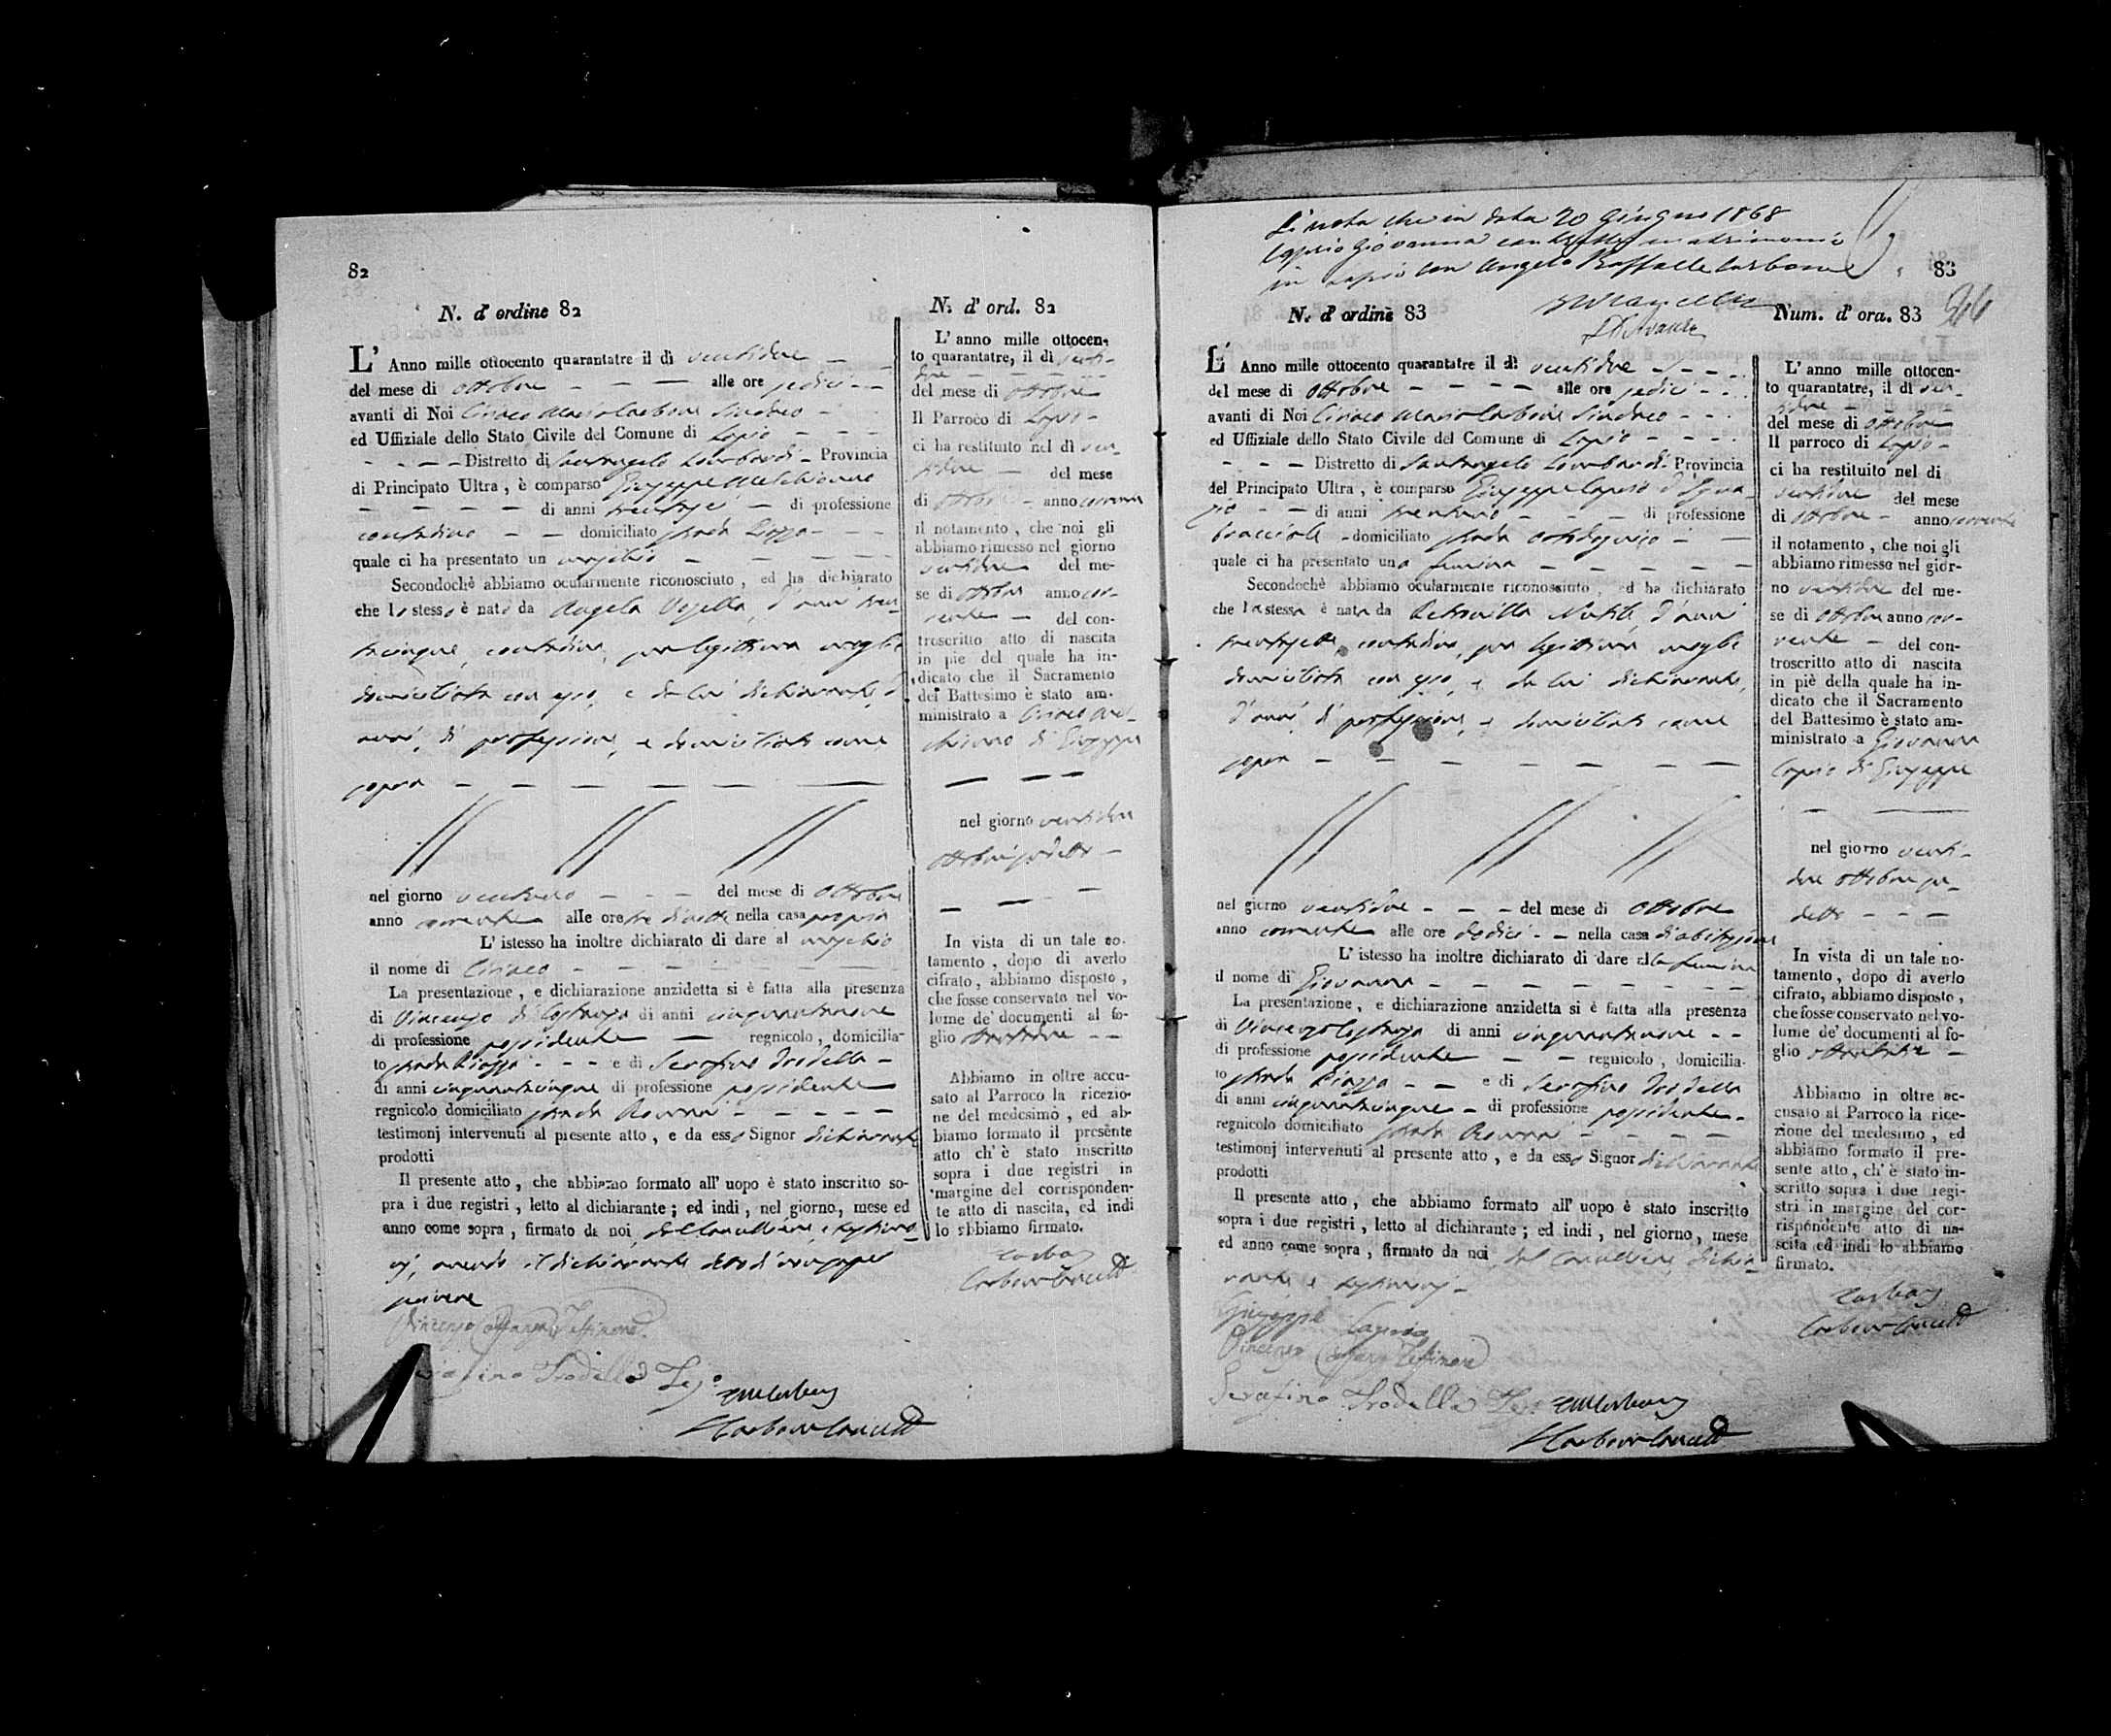 82
N. d' ordine 82
L' Anno mille ottocento quarantatre il dì ventidue
del mese di ottobre alle ore sedici
avanti di Noi Ciriaco Maria Carbone Sindaco
ed Uffiziale dello Stato Civile del Comune di Lapio
Distretto di Santangelo Lombardi Provincia
di Principato Ultra, è comparso Giuseppe Melchionno
di anni trentasei di professione
contadino domiciliato strada
quale ci ha presentato un maschio
Secondochè abbiamo ocularmente riconosciuto, ed ha dichiarato
che lo stesso è nato da Angela d'anni tren-
tacinque, contadina, sua legittima moglie
domiciliata con esso, e da lui dichiarante, d'
anni, di professione, e domiciliato come
sopra
nel giorno ventuno del mese di Ottobre
anno corrente alle ore tre di notte nella casa propria
L' istesso ha inoltre dichiarato di dare al maschio
il nome di Ciriaco
La presentazione, e dichiarazione anzidetta si è fatta alla presenza
di Vincenzo di anni cinquantanove
di professione possidente regnicolo, domicilia-
to strada Piazza e di Serafino Trodella
di anni cinquantacinque di professione possidente
regnicolo domiciliato strada
testimonj intervenuti al presente atto, e da esso Signor dichiarante
prodotti
Il presente atto, che abbiamo formato all' uopo è stato inscritto so-
pra i due registri, letto al dichiarante; ed indi, nel giorno, mese ed
anno come sopra, firmato da noi, dal Cancelliere, e testimo-
nj, avendo il dichiarante detto di non saper
scrivere
Vincenzo Testimone
Serafino Trodella Tes.o
N. d' ord. 82
L' anno mille ottocen-
to quarantatre, il dì venti-
due
del mese di ottobre
Il Parroco di Lapio
ci ha restituito nel dì ven-
tidue del mese
di ottobre anno corrente
il notamento, che noi gli
abbiamo rimesso nel giorno
ventidue del me-
se di ottobre anno cor-
rente del con-
troscritto atto di nascita
in pie del quale ha in-
dicato che il Sacramento
del Battesimo è stato am-
ministrato a Ciriaco Mel-
chionno di Giuseppe
nel giorno ventidue
ottobre sudetto
In vista di un tale no-
tamento, dopo di averlo
cifrato, abbiamo disposto,
che fosse conservato nel vo-
lume de' documenti al fo-
glio ottantadue
Abbiamo in oltre accu-
sato al Parroco la ricezio-
ne del medesimo, ed ab-
biamo formato il presente
atto ch' è stato inscritto
sopra i due registri in
margine del corrisponden-
te atto di nascita, ed indi
lo abbiamo firmato.
83
Si nota che in data 20 Giugno 1868
Caprio Giovanna contratto matrimonio
in Lapio con Angelo Raffaele Carbone
N. d' ordine 83
L' Anno mille ottocento quarantatre il dì ventidue
del mese di Ottobre alle ore sedici
avanti di Noi Ciriaco Maria Carbone Sindaco
ed Uffiziale dello Stato Civile del Comune di Lapio
Distretto di Santangelo Lombardi Provincia
del Principato Ultra, è comparso Giuseppe Caprio d'Igna-
zio di anni trentuno di professione
bracciale domiciliato strada
quale ci ha presentato una femina
Secondochè abbiamo ocularmente riconosciuto, ed ha dichiarato
che la stessa è nata da Petronilla d'anni
trentasette, contadina, sua legittima moglie
domiciliata con esso, e da lui dichiarante,
d'anni, di professione, e domiciliato come
sopra
nel giorno ventidue del mese di Ottobre
anno corrente alle ore dodici nella casa d'abitazione
L' istesso ha inoltre dichiarato di dare alla femina
il nome di Giovanna
La presentazione, e dichiarazione anzidetta si è fatta alla presenza
di Vincenzo di anni cinquantanove
di professione possidente regnicolo, domicilia-
to strada Piazza e di Serafino Trodella
di anni cinquantacinque di professione possidente
regnicolo domiciliato strada
testimonj intervenuti al presente atto, e da esso Signor dichiarante
prodotti
Il presente atto, che abbiamo formato all' uopo è stato inscritto
sopra i due registri, letto al dichiarante; ed indi, nel giorno, mese
ed anno come sopra, firmato da noi, dal Cancelliere, dichia-
rante e testimonj
Giuseppe Caprio
Vincenzo Testimone
Serafino Trodella Tes.
Num. d' ora. 83
L' anno mille ottocen-
to quarantatre, il dì ven-
tidue
del mese di Ottobre
Il parroco di Lapio
ci ha restituito nel dì
ventidue del mese
di ottobre anno corrente
il notamento, che noi gli
abbiamo rimesso nel gior-
no ventidue del me-
se di ottobre anno cor-
rente del con-
troscritto atto di nascita
in piè della quale ha in-
dicato che il Sacramento
del Battesimo è stato am-
ministrato a Giovanna
Caprio di Giuseppe
nel giorno venti-
due ottobre su-
detto
In vista di un tale no-
tamento, dopo di averlo
cifrato, abbiamo disposto,
che fosse conservato nel vo-
lume de' documenti al fo-
glio ottantatre
Abbiamo in oltre ac-
cusato al Parroco la rice-
zione del medesimo, ed
abbiamo formato il pre-
sente atto, ch' è stato in-
scritto sopra i due regi-
stri in margine del cor-
rispondente atto di na-
scita ed indi lo abbiamo
firmato.